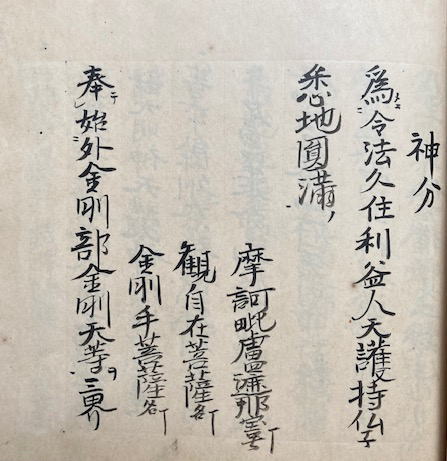 神分
為令法久住利益人天護持仏子
悉地圓滿
摩訶毗盧遮那宝号丁
観自在菩薩名丁
金剛手菩薩名丁
奉テ始外金剛部金剛天等ヲ三界